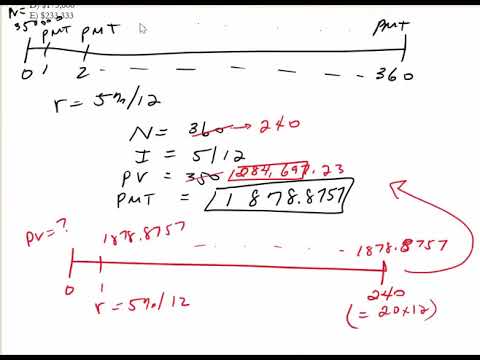 E) $233,333
PMT PMT PMT
0 1 2 360
r = 5%/12
N = 360 → 240
I = 5/12
PV = 350 284,697.23
PMT = 1878.8757
PV = ? 1878.8757 1878.8757
0 1 240
r = 5%/12 (= 20x12)